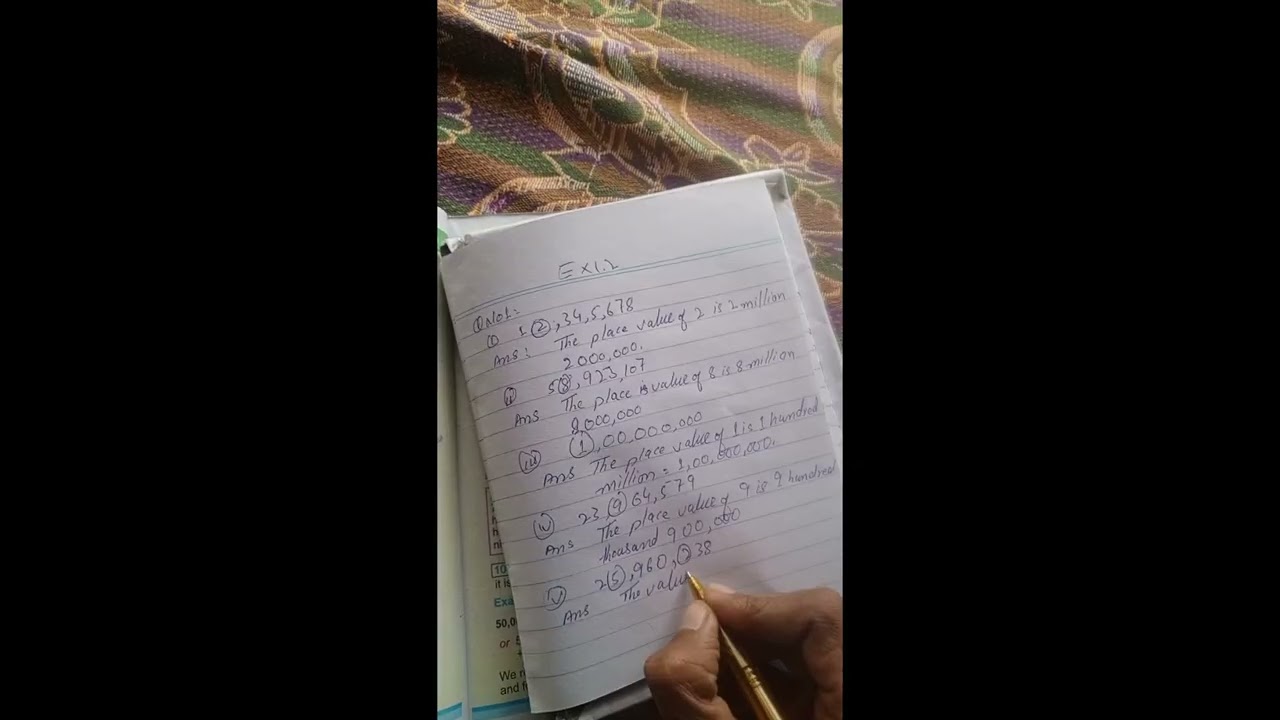 Ex1.2
Q No1:
(i) 1 2,34,5,678
Ans: The place value of 2 is 2 million
2000,000.
(ii) 58,923,107
Ans The place is value of 8 is 8 million
8,000,000
(iii) 1,00,000,000
Ans The place value of 1 is 1 hundred
million = 1,00,000,000.
(iv) 23,9 64,579
Ans The place value of 9 is 9 hundred
thousand 900,000
(v) 25,960,238
Ans The value
10
it is
Exa
50,0
or 5
We n
and f